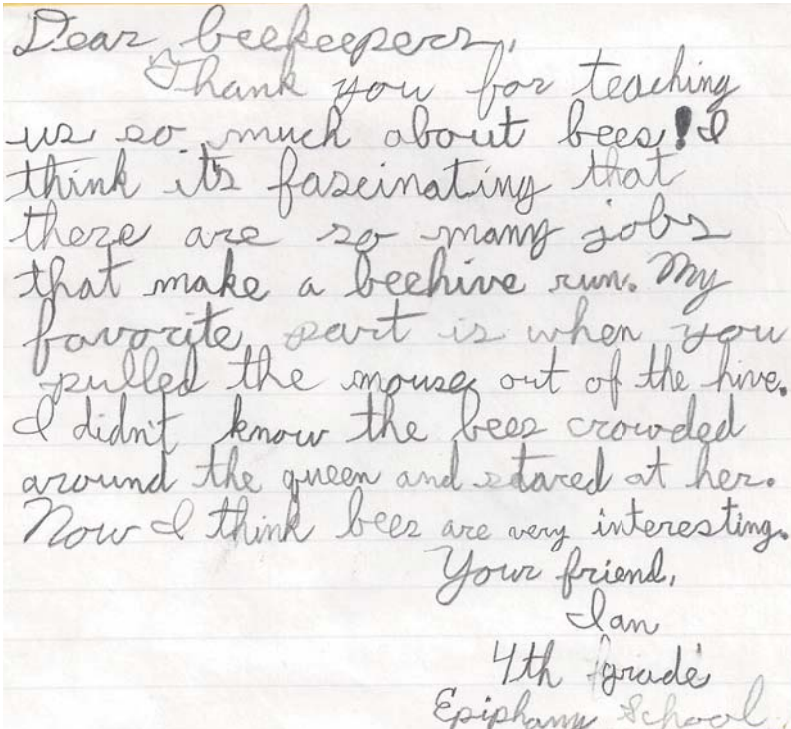 Dear beekeepers,
Thank you for teaching
us so much about bees! I
think it's fascinating that
there are so many jobs
that make a beehive run. My
favorite part is when you
pulled the mouse out of the hive.
I didn't know the bees crowded
around the queen and stared at her.
Now I think bees are very interesting.
Your friend,
Ian
4th grade
Epiphany School